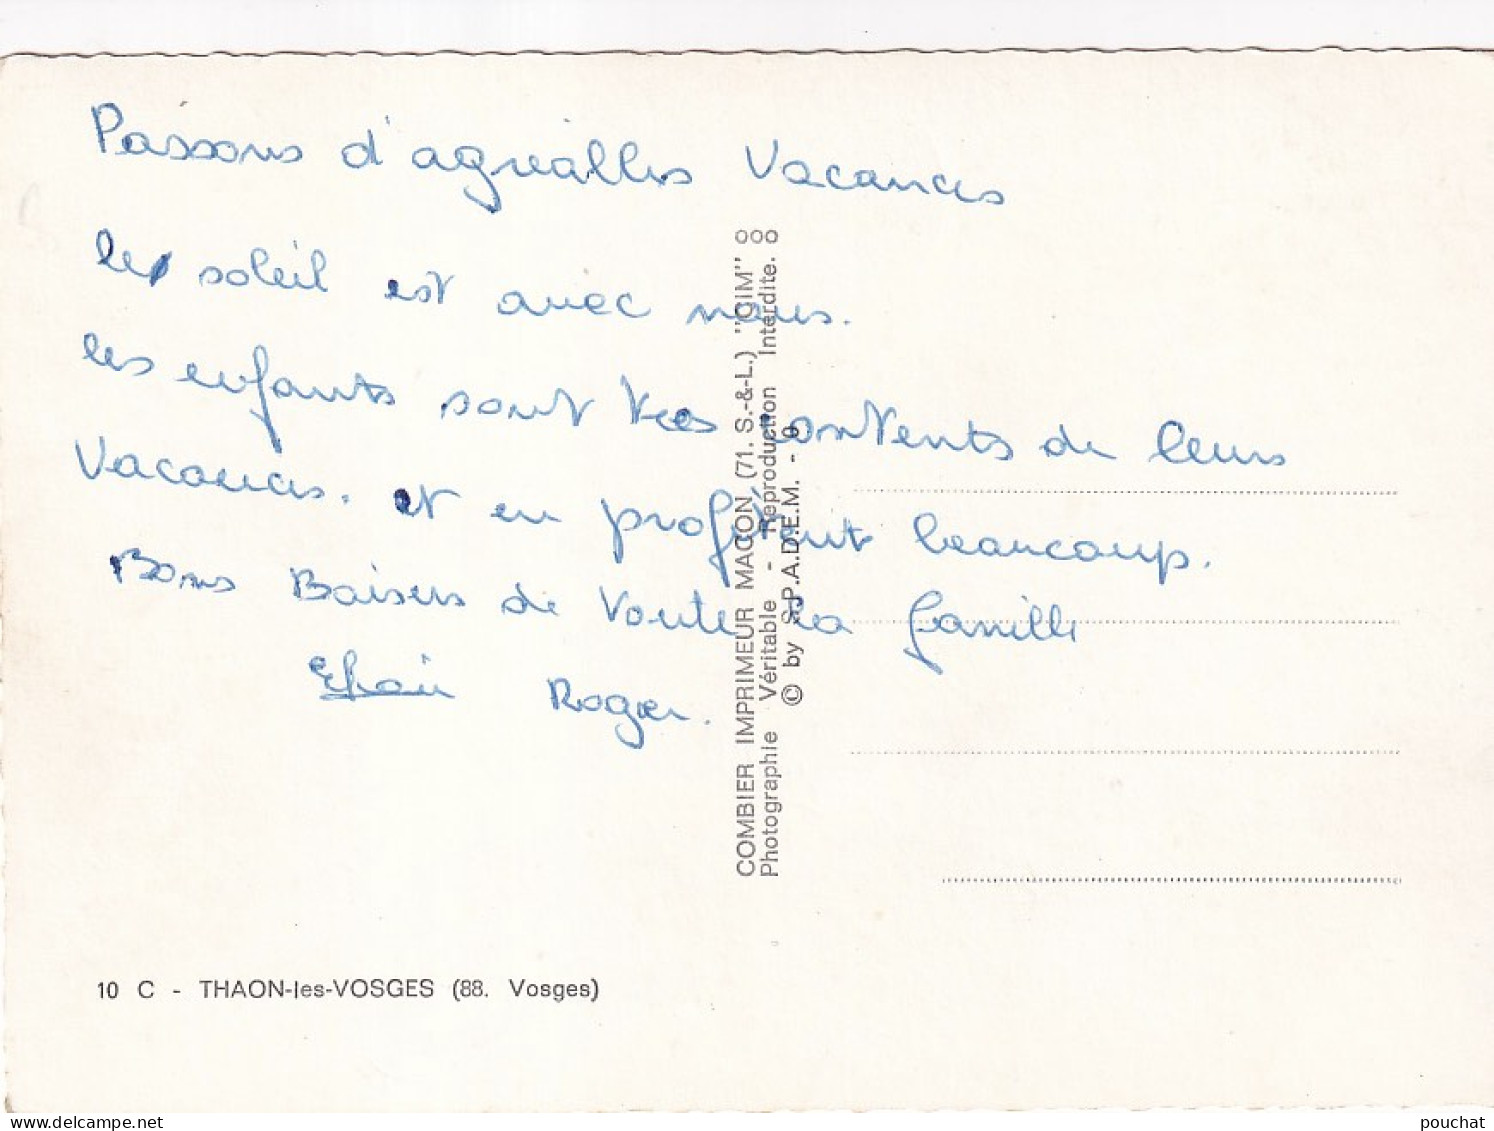 Passons d'agréables Vacances
le soleil est avec nous.
les enfants sont tres contents de leurs
Vacances. et en profitent beaucoup.
Bons Baisers de Toute la famille
Roger.
COMBIER IMPRIMEUR MACON (71. S.-&-L.) "CIM"
Photographie Véritable - Reproduction Interdite.
© by S.P.A.D.E.M. - 9
10 C - THAON-les-VOSGES (88. Vosges)
pouchat